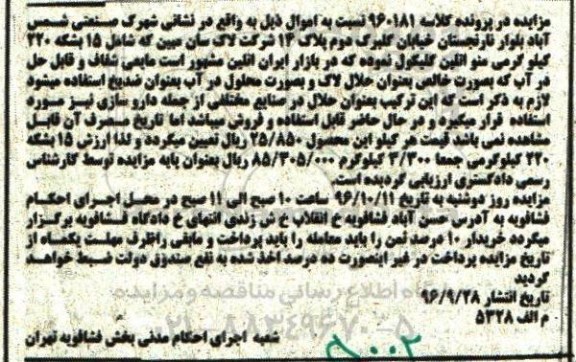 مزایده در پرونده کلاسه ۹۶۰۱۸۱ نسبت به اموال ذیل به واقع در نشانی شهرک صنعتی شمس
آباد بلوار نارنجستان خیابان گلبرک دوم پلاک ۱۴ شرکت لاک سان مبین که شامل ۱۵ بشکه ۲۲۰
کیلو گرمی منو اتلین گلیکول نموده که در بازار ایران اتلین مشهور است مایعی شفاف و قابل حل
در آب که بصورت خالص بعنوان حلال لاک و بصورت محلول در آب بعنوان ضدیخ استفاده میشود
لازم به ذکر است که این ترکیب بعنوان حلال در صنایع مختلفی از جمله دارو سازی نیز مورد
استفاده قرار میگیرد و در حال حاضر قابل استفاده و فروشی میباشد اما تاریخ مصرف آن قابل
مشاهده نمی باشد قیمت هر کیلو این محصول ۲۵/۸۵۰ ریال تعیین میگردد و لذا ارزش ۱۵ بشکه
۲۲۰ کیلوگرمی جمعا ۳/۳۰۰ کیلوگرم ۸۵/۳۰۵/۰۰۰ ریال بعنوان پایه مزایده توسط کارشناس
رسمی دادگستری ارزیابی گردیده است.
مزایده روز دوشنبه به تاریخ ۹۶/۱۰/۱۱ ساعت ۱۰ صبح الی ۱۱ صبح در محل اجرای احکام
فشافویه به آدرس حسن آباد فشافویه خ انقلاب خ ش زندی انتهای خ دادگاه فشافویه برگزار
میگردد خریدار ۱۰ درصد ثمن را باید معامله را باید پرداخت و مابقی راظرف مهلت یکماه از
تاریخ مزایده پرداخت در غیر اینصورت ده درصد اخذ شده به نفع صندوق دولت ضبط خواهد
گردید
تاریخ انتشار ۹۶/۹/۲۸
م الف ۵۳۲۸
شعبه اجرای احکام مدنی بخش فشافویه تهران
پایگاه اطلاع رسانی مناقصه و مزایده
۰۲۱-۸۸۳۴۹۶۷۰-۵